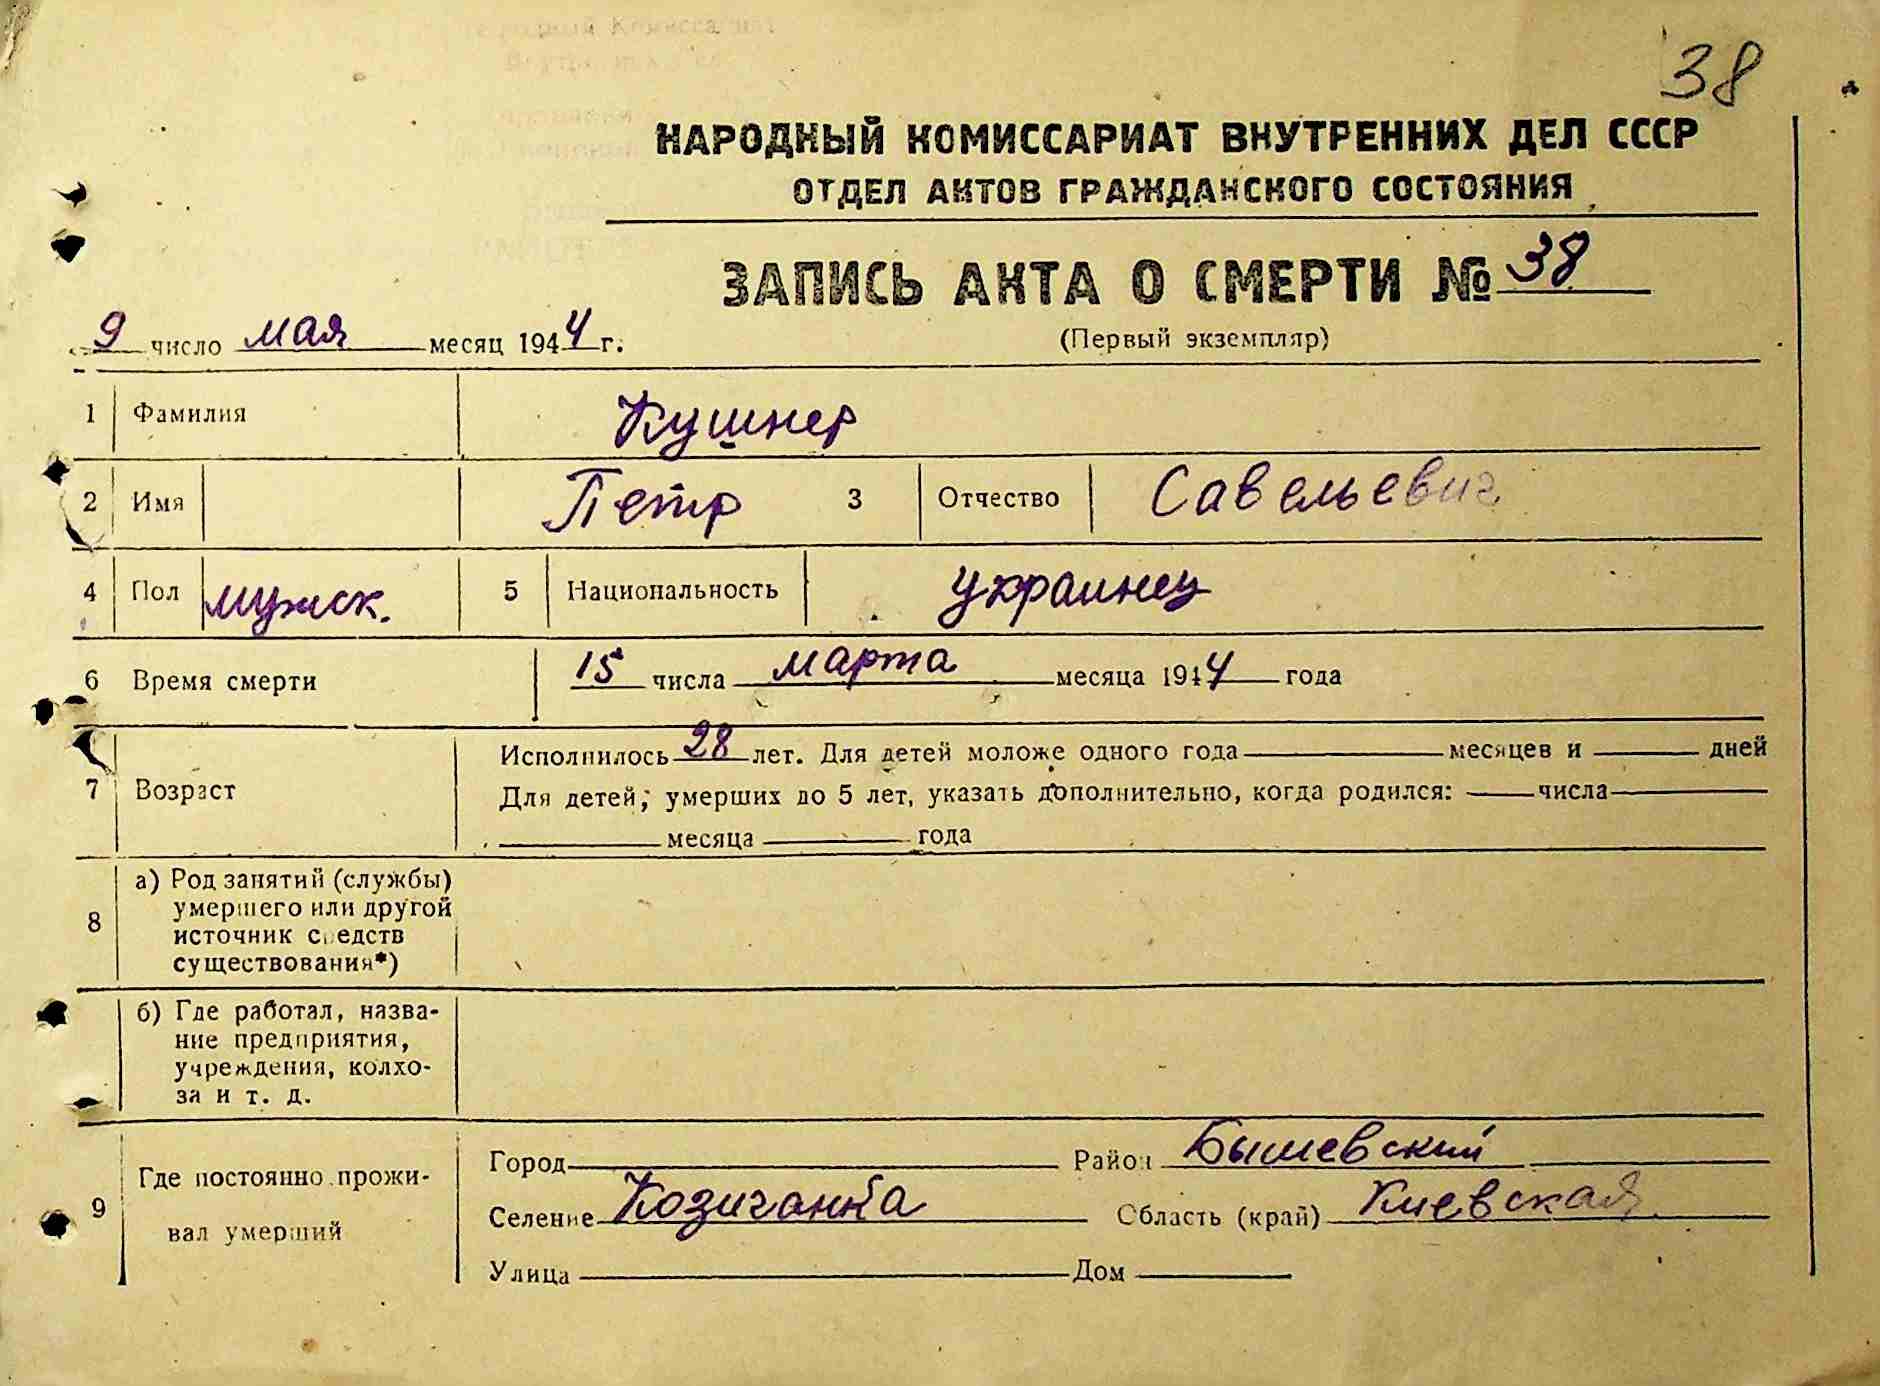 38
НАРОДНЫЙ КОМИССАРИАТ ВНУТРЕННИХ ДЕЛ СССР
ОТДЕЛ АКТОВ ГРАЖДАНСКОГО СОСТОЯНИЯ
ЗАПИСЬ АКТА О СМЕРТИ № 38
9 число мая месяц 1944 г.
(Первый экземпляр)
1 Фамилия Кушнер
2 Имя Петр 3 Отчество Савельевич
4 Пол мужск. 5 Национальность украинец
6 Время смерти 15 числа марта месяца 1944 года
Исполнилось 28 лет. Для детей моложе одного года месяцев и дней
7 Возраст Для детей, умерших до 5 лет, указать дополнительно, когда родился: числа
месяца года
8 а) Род занятий (службы)
умершего или другой
источник средств
существования*)
б) Где работал, назва-
ние предприятия,
учреждения, колхо-
за и т. д.
9 Где постоянно прожи-
вал умерший
Город Район Бышевский
Селение Козичанка Область (край) Киевская
Улица Дом